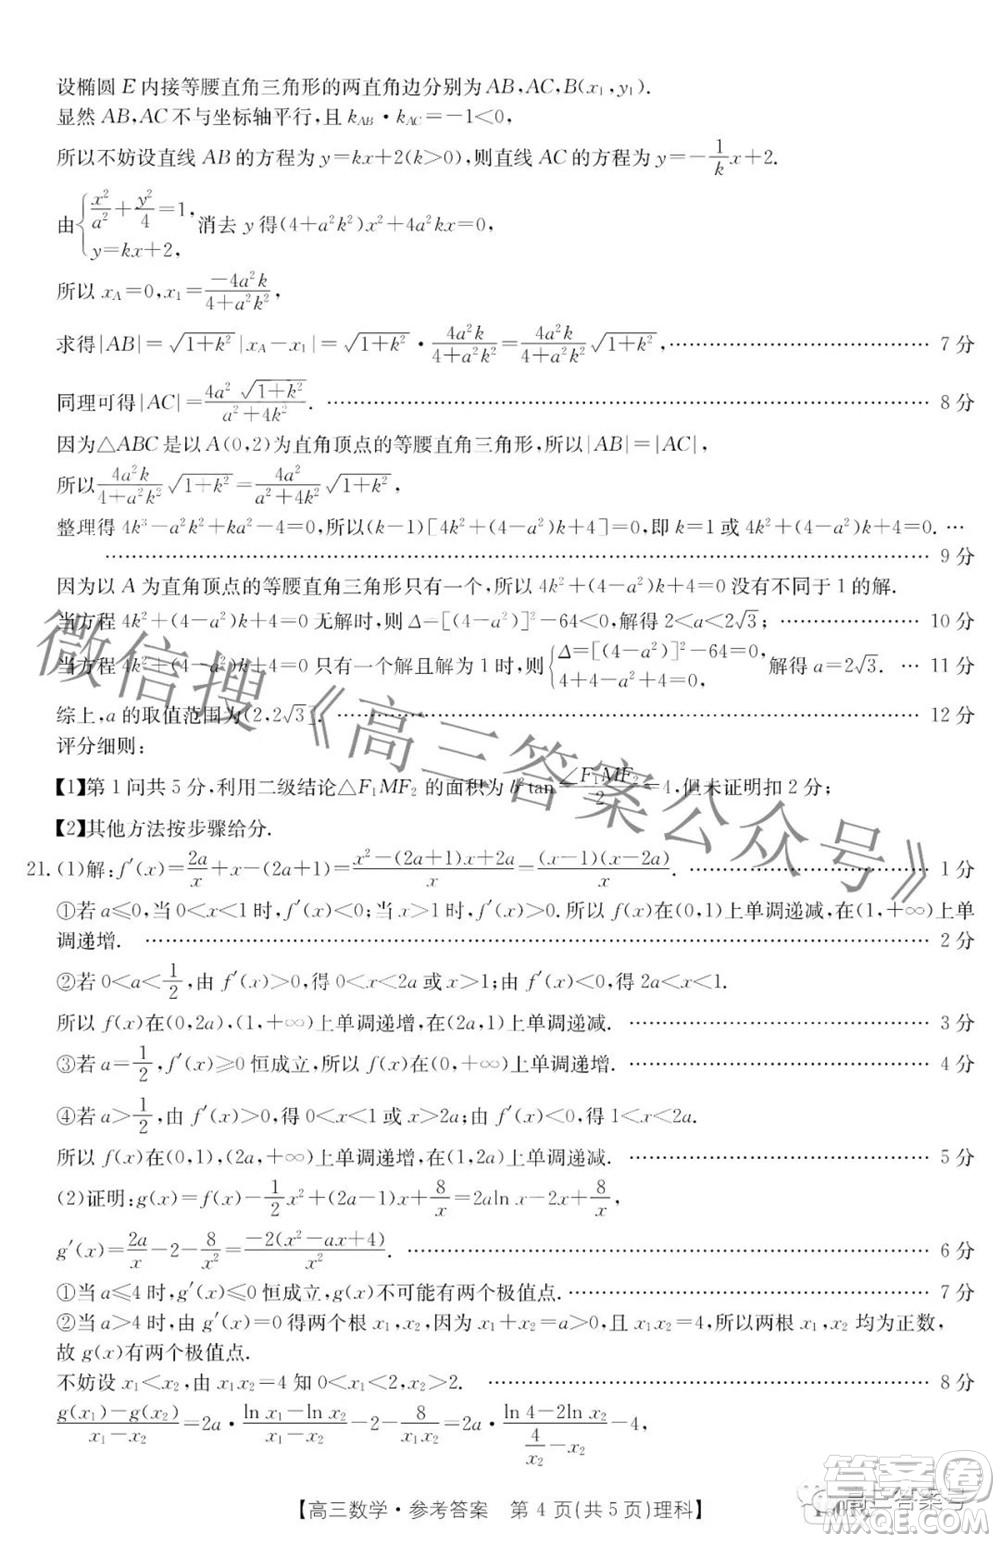 设椭圆 E 内接等腰直角三角形的两直角边分别为 AB,AC,B(x₁,y₁).
显然 AB,AC 不与坐标轴平行,且 k_AB·k_AC=-1<0,
所以不妨设直线 AB 的方程为 y=kx+2(k>0),则直线 AC 的方程为 y=-1/k x+2.
由{x²/a²+y²/4=1, y=kx+2, 消去 y 得(4+a²k²)x²+4a²kx=0,
所以 x_A=0,x₁=-4a²k/(4+a²k²),
求得|AB|=√(1+k²)|x_A-x₁|=√(1+k²)·4a²k/(4+a²k²)=4a²k/(4+a²k²)√(1+k²),…… 7 分
同理可得|AC|=4a²√(1+k²)/(a²+4k²). …… 8 分
因为△ABC 是以 A(0,2)为直角顶点的等腰直角三角形,所以|AB|=|AC|,
所以4a²k/(4+a²k²)√(1+k²)=4a²/(a²+4k²)√(1+k²),
整理得 4k³-a²k²+ka²-4=0,所以(k-1)[4k²+(4-a²)k+4]=0,即 k=1 或 4k²+(4-a²)k+4=0. …
…… 9 分
因为以 A 为直角顶点的等腰直角三角形只有一个,所以 4k²+(4-a²)k+4=0 无解或有不等于 1 的解.
当方程 4k²+(4-a²)k+4=0 无解时,则 Δ=[(4-a²)]²-64<0,解得 2<a<2√3; …… 10 分
当方程 4k²+(4-a²)k+4=0 只有一个解且解为 1 时,则{Δ=[(4-a²)]²-64=0, 4+4-a²+4=0, 解得 a=2√3. … 11 分
综上,a 的取值范围为(2,2√3]. …… 12 分
评分细则:
【1】第 1 问共 5 分,利用二级结论△F₁MF₂ 的面积为 b²tan ∠F₁MF₂/2=4,但未证明扣 2 分;
【2】其他方法按步骤给分.
21.(1)解:f′(x)=2a/x+x-(2a+1)=(x²-(2a+1)x+2a)/x=(x-1)(x-2a)/x. …… 1 分
①若 a≤0,当 0<x<1 时,f′(x)<0;当 x>1 时,f′(x)>0.所以 f(x)在(0,1)上单调递减,在(1,+∞)上单
调递增. …… 2 分
②若 0<a<1/2,由 f′(x)>0,得 0<x<2a 或 x>1;由 f′(x)<0,得 2a<x<1.
所以 f(x)在(0,2a),(1,+∞)上单调递增,在(2a,1)上单调递减. …… 3 分
③若 a=1/2,f′(x)≥0 恒成立,所以 f(x)在(0,+∞)上单调递增. …… 4 分
④若 a>1/2,由 f′(x)>0,得 0<x<1 或 x>2a;由 f′(x)<0,得 1<x<2a.
所以 f(x)在(0,1),(2a,+∞)上单调递增,在(1,2a)上单调递减. …… 5 分
(2)证明:g(x)=f(x)-1/2x²+(2a-1)x+8/x=2aln x-2x+8/x,
g′(x)=2a/x-2-8/x²=-2(x²-ax+4)/x². …… 6 分
①当 a≤4 时,g′(x)≤0 恒成立,g(x)不可能有两个极值点. …… 7 分
②当 a>4 时,由 g′(x)=0 得两个根 x₁,x₂,因为 x₁+x₂=a>0,且 x₁x₂=4,所以两根 x₁,x₂ 均为正数,
故 g(x)有两个极值点.
不妨设 x₁<x₂,由 x₁x₂=4 知 0<x₁<2,x₂>2. …… 8 分
(g(x₁)-g(x₂))/(x₁-x₂)=2a·(ln x₁-ln x₂)/(x₁-x₂)-2-8/(x₁x₂)=2a·(ln 4-2ln x₂)/(4/x₂-x₂)-4,
【高三数学·参考答案 第 4 页(共 5 页)理科】
微信搜《高三答案公众号》
高三答案号
答案圈